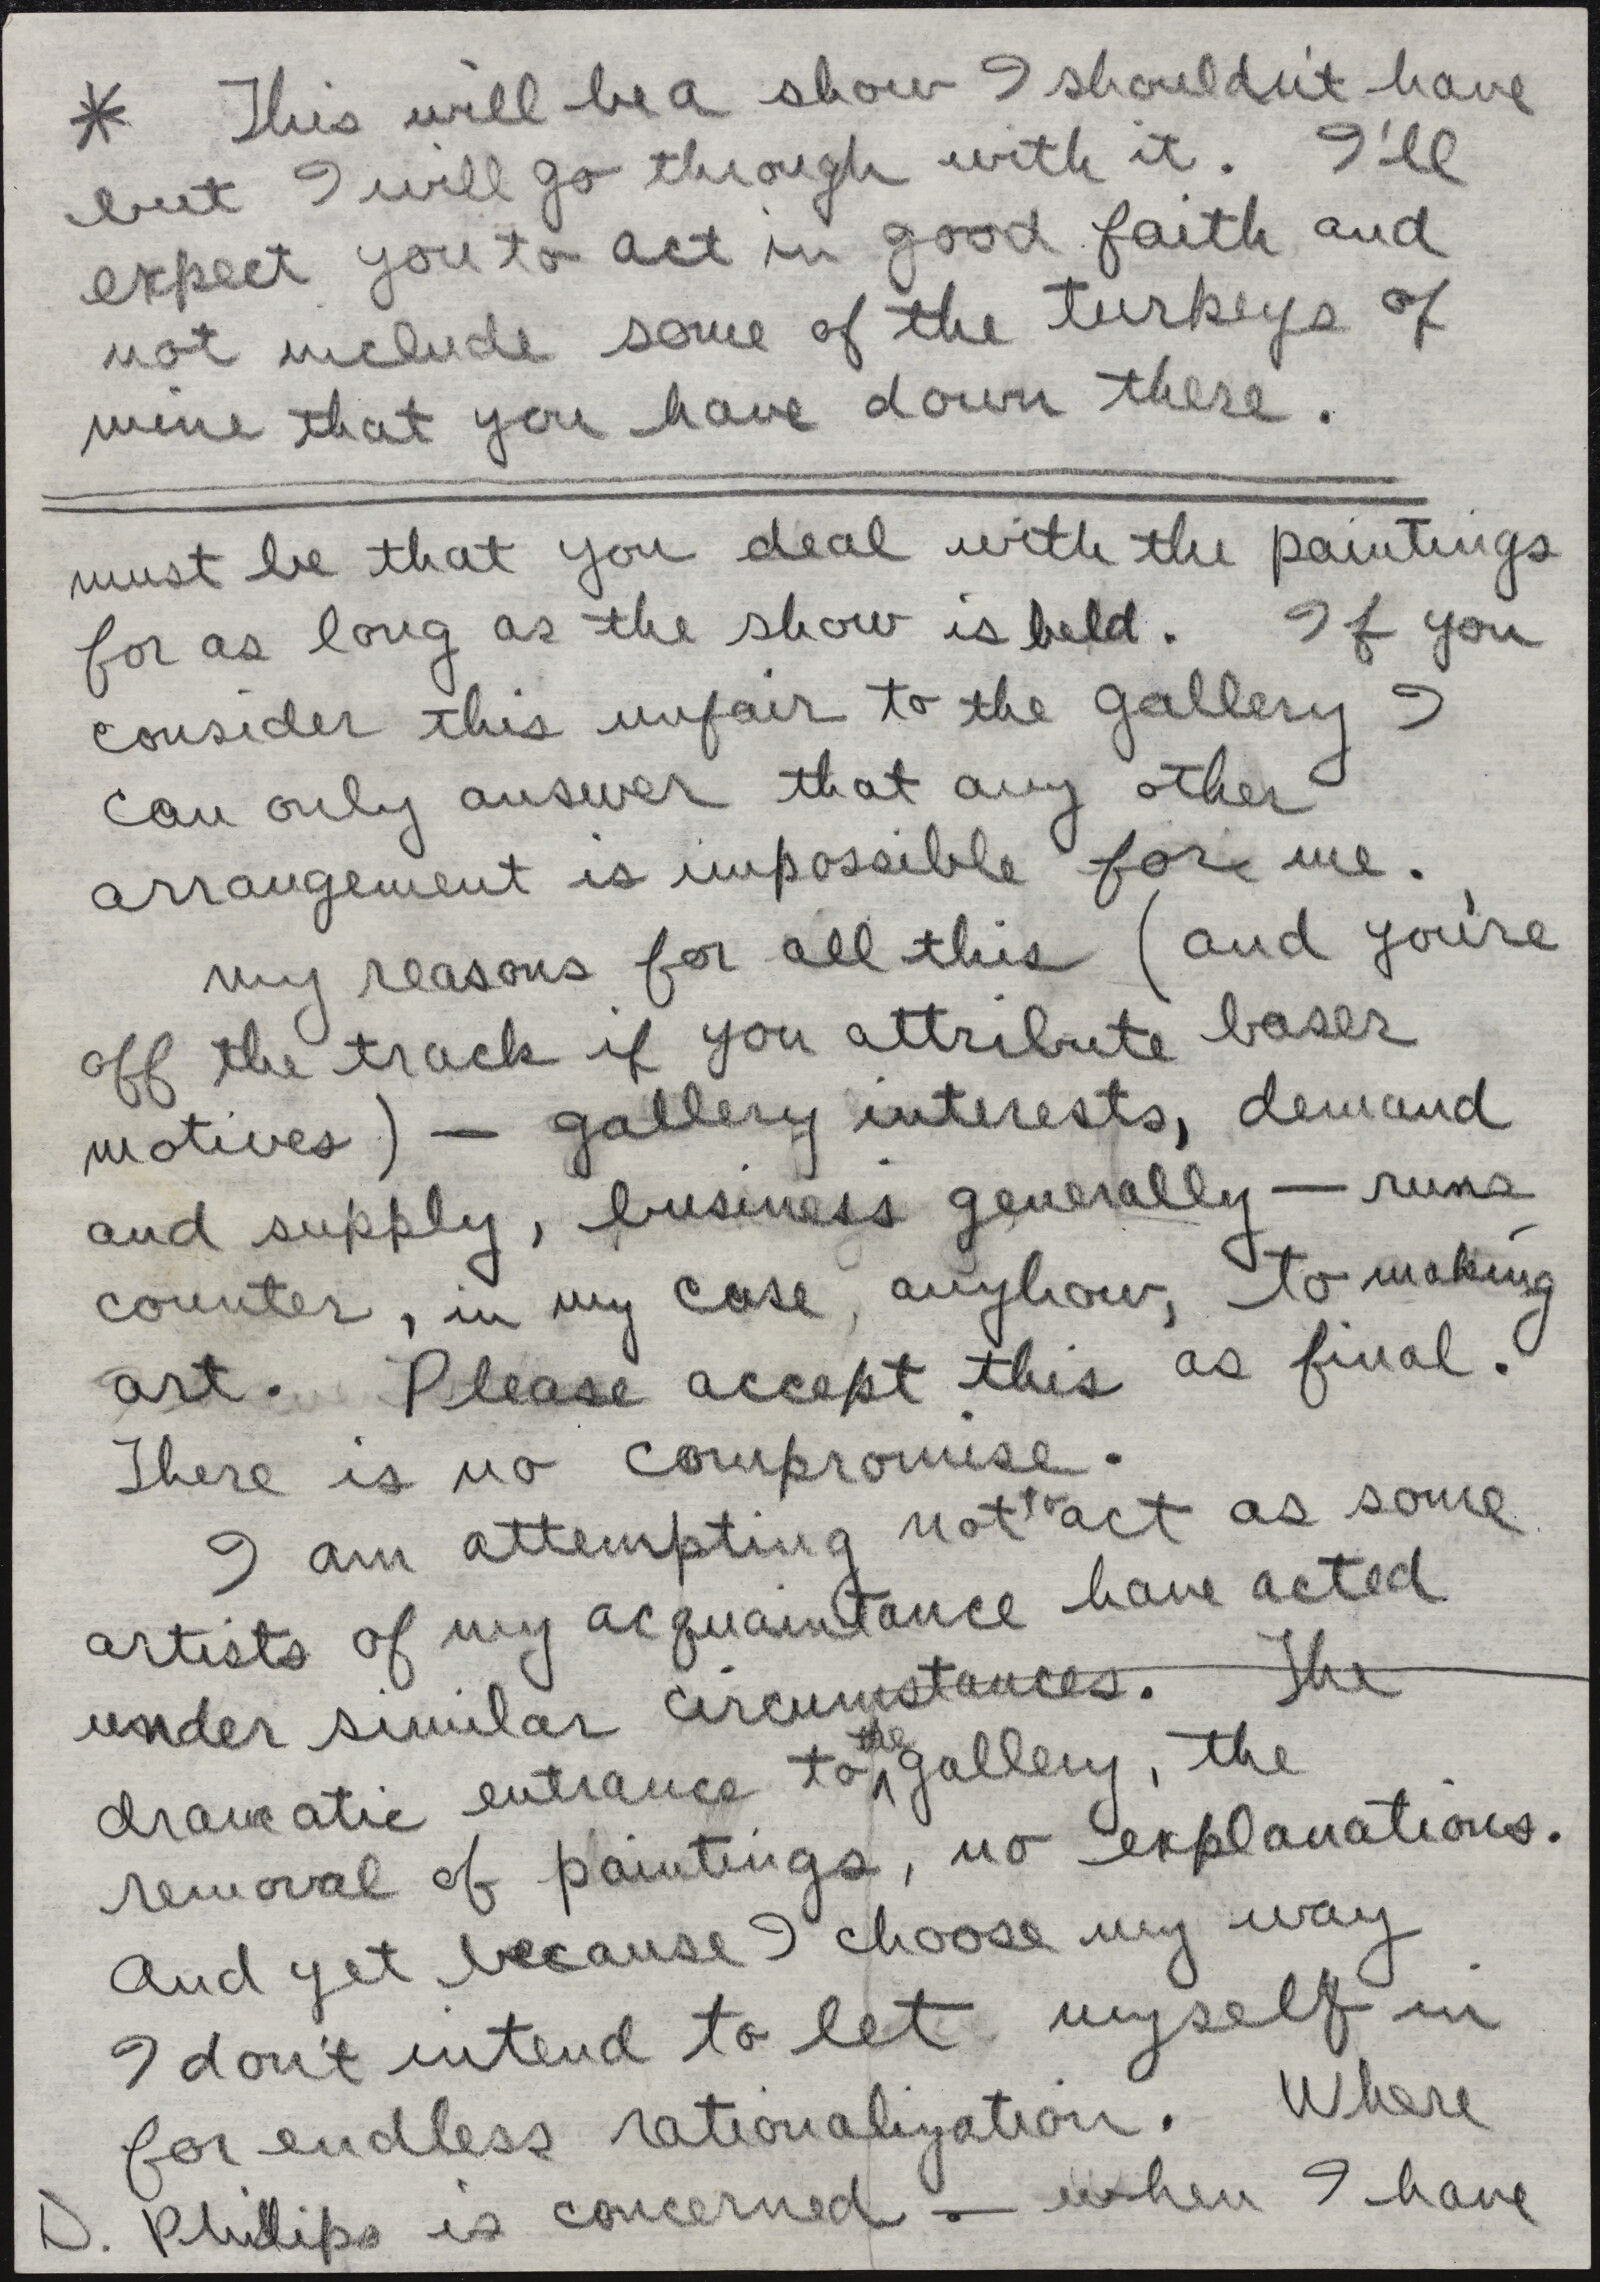 * This will be a show I shouldn't have
but I will go through with it. I'll
expect you to act in good faith and
not include some of the turkeys of
mine that you have down there.
must be that you deal with the paintings
for as long as the show is held. If you
consider this unfair to the gallery I
can only answer that any other
arrangement is impossible for me.
my reasons for all this (and you're
off the track if you attribute baser
motives) — gallery interests, demand
and supply, business generally — runs
counter, in my case, anyhow, to making
art. Please accept this as final.
There is no compromise.
I am attempting not to act as some
artists of my acquaintance have acted
under similar circumstances. The
dramatic entrance to the gallery, the
removal of paintings, no explanations.
And yet because I choose my way
I don't intend to let myself in
for endless rationalization. Where
D. Phillips is concerned — when I have